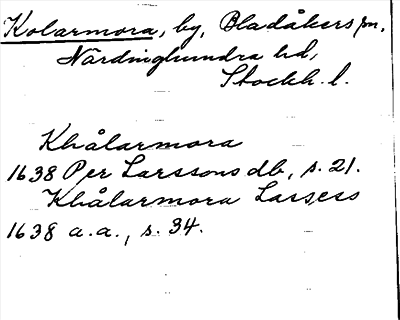 Kolarmora, by, Bladåkers sn,
Närdinghundra hd,
Stockh. l.
Khålarmora
1638 Per Larssons db, s. 21.
Khålarmora Larsess
1638 a.a., s. 34.